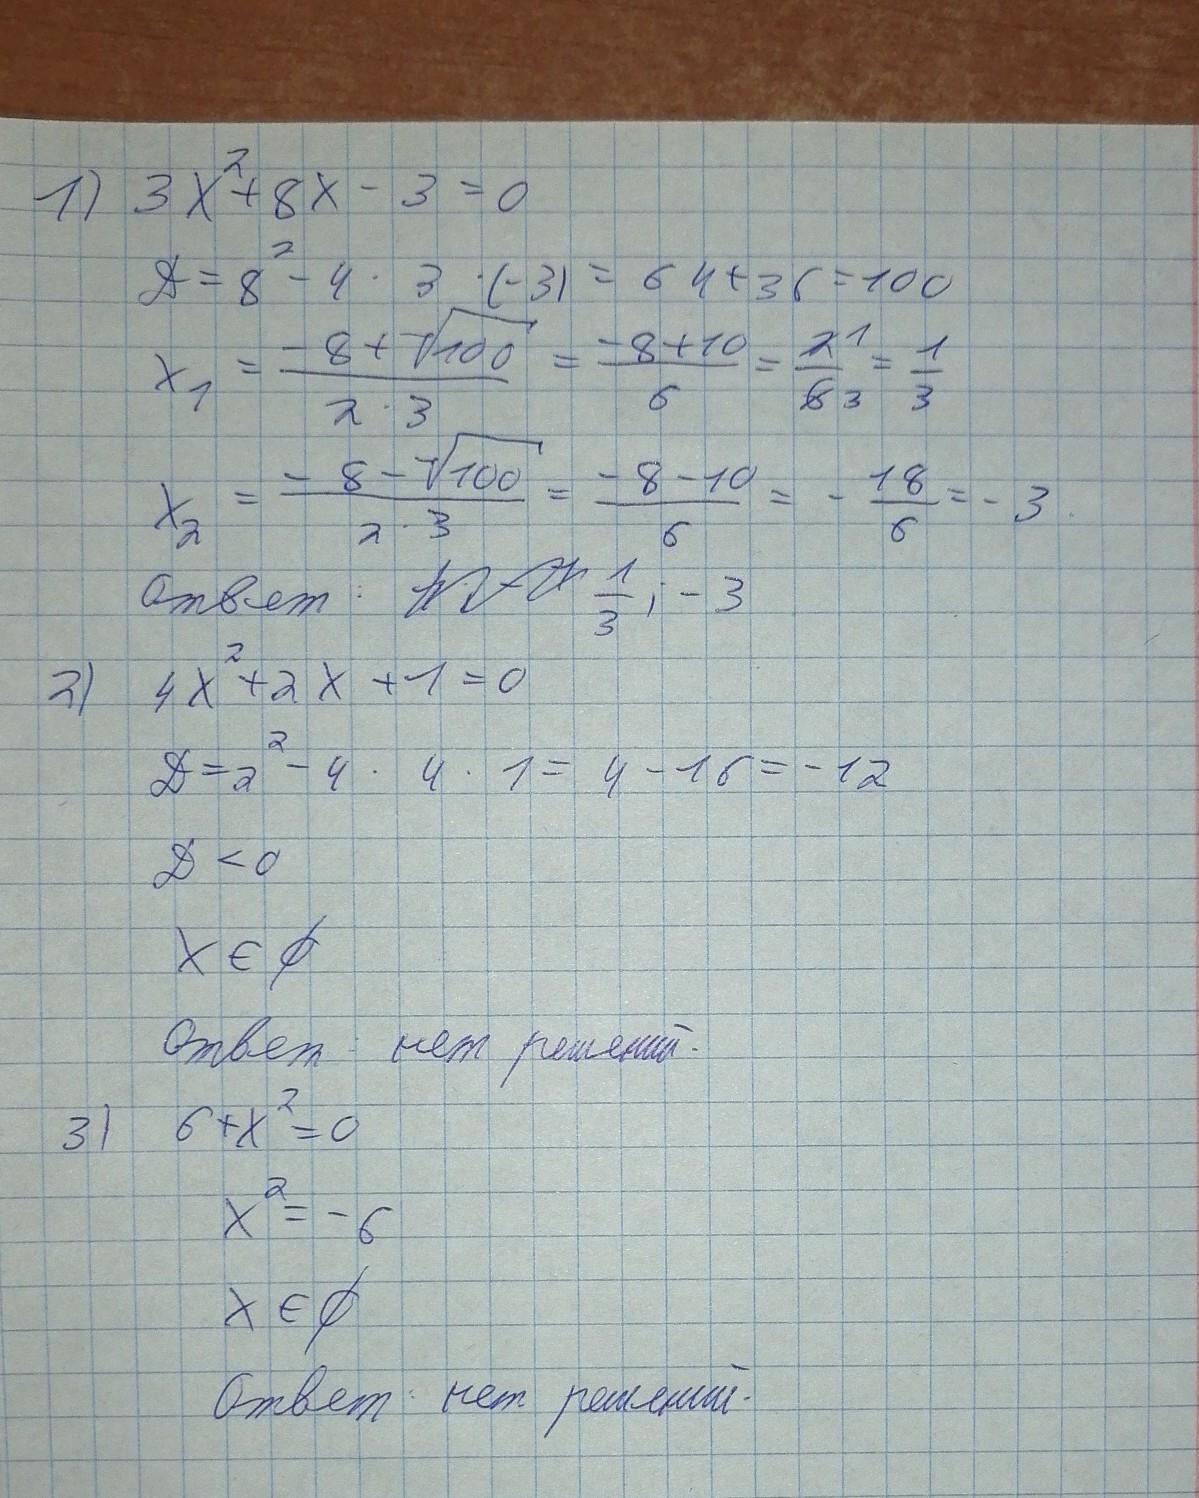 1) 3x²+8x-3=0
D=8²-4·3·(-3)=64+36=100
x₁ = (-8+√100)/(2·3) = (-8+10)/6 = 2 1/6 3 = 1/3
x₂ = (-8-√100)/(2·3) = (-8-10)/6 = -18/6 = -3
Ответ: 1/3; -3
2) 4x²+2x+1=0
D=2²-4·4·1=4-16=-12
D<0
x∈∅
Ответ: нет решений.
3) 6+x²=0
x²=-6
x∈∅
Ответ: нет решений.